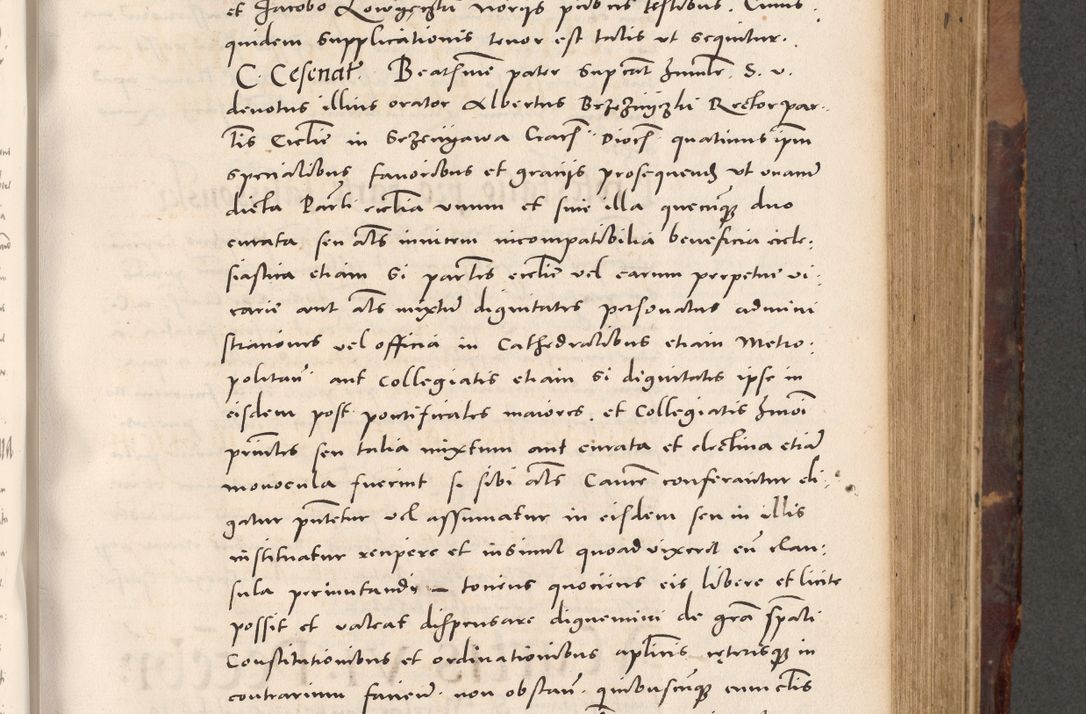 et Jacobo notariis publicis testibus. Cuius
quidem supplicationis tenor est talis ut sequitur.
C. Cesenat. Beatisime pater Supcat hmilr S. v.
devotus illius orator Albertus Brzezinyzki Rector par-
tis Ecclie in Crac Dioc quatinus ipm
specialibus favoribus et gratiis prosequend ut unacu
dicta Parti ecclia unum et sine illa quecunque duo
curata seu als invicem incompatibilia beneficia eccle-
siastica etiam si partes ecclie vel earum perpetue vi-
carie aut als mixtim dignitates personatus admini
strationes vel officia in Cathedralibus etiam Metro-
politan aut Collegiatis etiam si dignitates ipse in
eisdem post pontificales maiores et Collegiatis hmoi
principales seu talia mixtum aut curata et electiva etia
monocula fuerint si sibi als Canice conferantur eli-
gatur pntetur vel assumatur in eisdem seu in illis
instituatur recipere et insimul quoad vixerit cu clau-
sula permutandi totiens quociens eis libere et licite
possit et valeat dispensare dignemini de gra spali
Constitutionibus et ordinationibus aplicis ceterisque in
contrarium facien non obstan quibuscunque cum clis